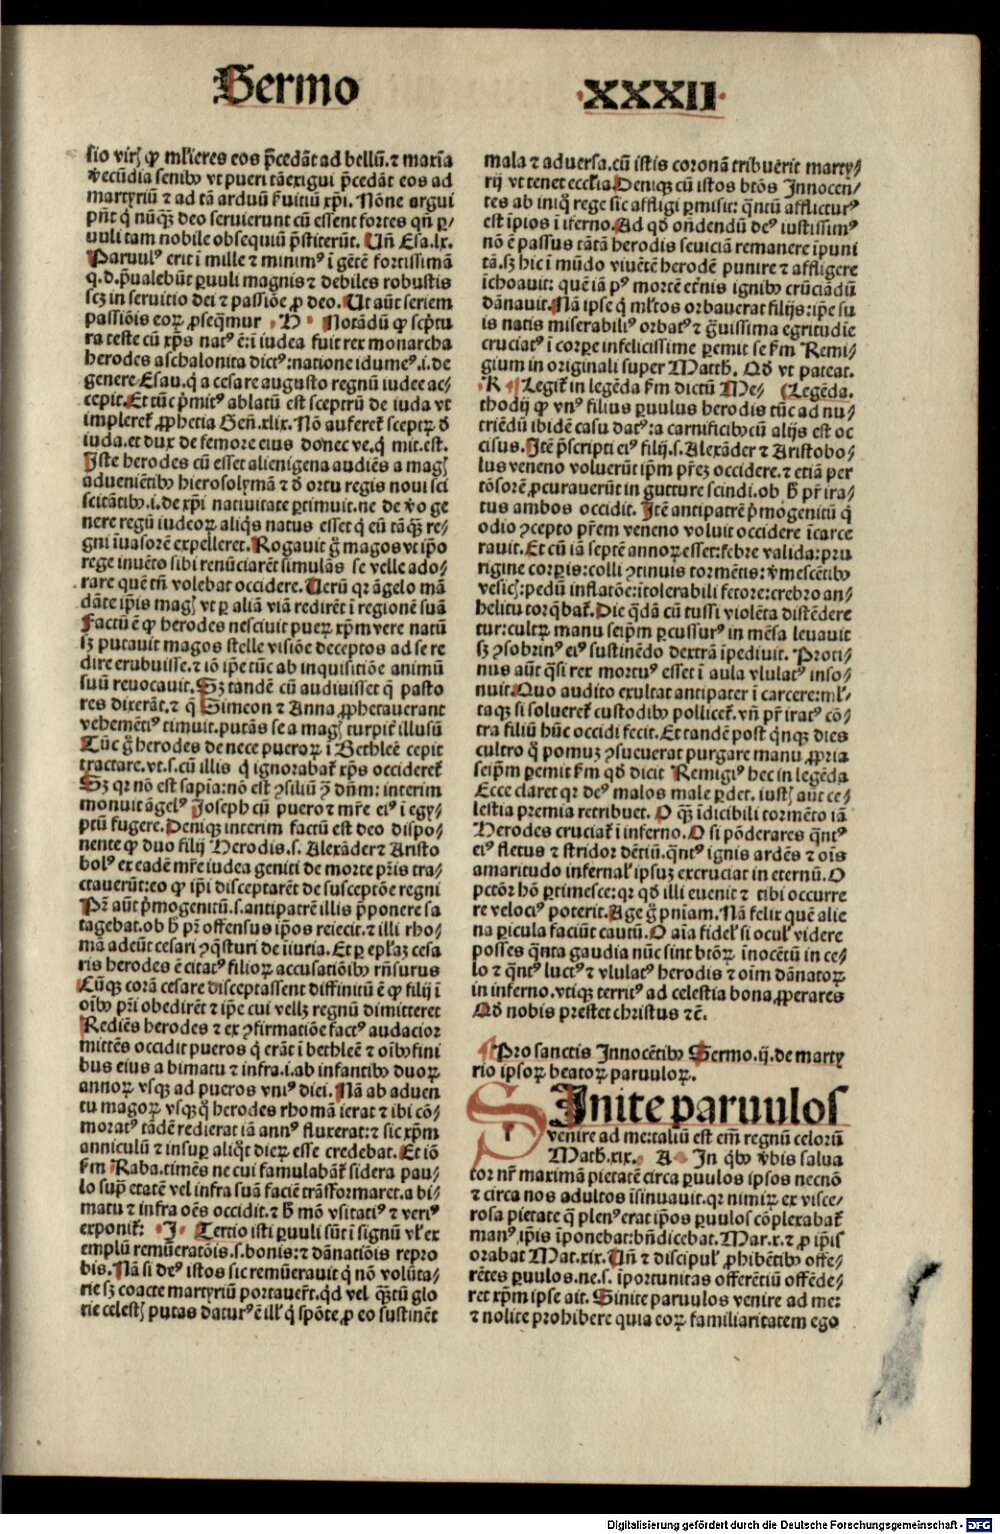 Sermo XXXII
sio virꝫ ꝙ ml̓ieres eos p̄cedāt ad bellū. ⁊ maxīa
v̓ecūdia senibꝰ vt pueri tā exigui p̄cedāt eos ad
martyriū ⁊ ad tā arduū ẜuitiū xp̄i. Nōne argui
pn̄t q̇ nūqꝫ deo seruierunt cū essent fortes qn̄ ꝑ/
uuli tam nobile obsequiū p̄stiterūt. Un̄ Esa. lx.
Paruulꝰ erit ī mille ⁊ minimꝰ ī gētē fortissimā
q. d. p̄ualebūt ꝑuuli magnis ⁊ debiles robustis
scꝫ in seruitio dei ⁊ passiōe ꝓ deo. Ut aūt seriem
passiōis eoꝝ ꝓseq̄mur . H . Notādū ꝙ scp̄tu
ra teste cū xp̄s natꝰ ē: ī iudea fuit rex monarcha
herodes aschalonita dictꝰ: natione idumeꝰ .i. de
genere Esau. q̇ a cesare augusto regnū iudee ac/
cepit. Et tūc p̓mitꝰ ablatū est sceptrū de iuda vt
impleret̉ ꝓphetia Gen̄. xlix. Nō auferet̉ sceptꝝ d̓
iuda. et dux de femore eius donec ve. q̇ mit. est.
Iste herodes cū esset alienigena audiēs a magꝭ
aduenientibꝰ hierosolymā ⁊ d̓ ortu regis noui sci
scitātibꝰ .i. de xp̄i natiuitate ꝑtimuit. ne de v̓o ge
nere regū iudeoꝝ aliq̇s natus esset q̇ eū tāqꝫ re/
gni īuasorē expelleret. Rogauit g̊ magos vt ip̄o
rege inuēto sibi renūciarēt simulās se velle ado/
rare quē tn̄ volebat occidere. Uerū qꝛ āgelo mā
dāte ip̄is magꝭ vt ꝑ aliā viā redirēt ī regionē suā
Factū ē ꝙ herodes nesciuit pueꝝ xp̄m vere natū
sꝫ putauit magos stelle visiōe deceptos ad se re
dire erubuisse. ⁊ iō ip̄e tūc ab inquisitiōe animū
suū reuocauit. Sꝫ tandē cū audiuisset q̄ pasto
res dixerāt. ⁊ q̄ Simeon ⁊ Anna ꝓphetauerant
vehemētiꝰ timuit. putās se a magꝭ turpit̉ illusū
Tūc g̊ herodes de nece pueroꝝ ī Bethleē cepit
tractare. vt .s. cū illis q̇ ignorabat̉ xp̄s occideret̉
Sꝫ qꝛ nō est sapia: nō est ꝯsiliū ꝯ dn̄m: interim
monuit āgelꝰ Joseph cū puero ⁊ mr̄e eiꝰ ī egy/
ptū fugere. Deniqꝫ interim factū est deo dispo/
nente ꝙ duo filij Herodis .s. Alexāder ⁊ Aristo
bolꝰ ex eadē mr̄e iudea geniti de morte pr̄is tra/
ctauerūt: eo ꝙ ip̄i disceptarēt de susceptōe regni
Pr̄ aūt p̓mogenitū .s. antipatrē illis p̄ponere sa
tagebat. ob h̄ pr̄ offensus ip̄os reiecit. ⁊ illi rho/
mā adeūt cesari ꝯq̄sturi de iīuria. Et ꝑ ep̄laꝫ cesa
ris herodes ē citatꝰ filioꝝ accusatiōibꝰ rn̄surus
Cūqꝫ corā cesare disceptassent diffinitū ē ꝙ filij ī
oībꝰ pr̄i obedirēt ⁊ ip̄e cui vellꝫ regnū dimitteret
Rediēs herodes ⁊ ex ꝯfirmatiōe factꝰ audacior
mittēs occidit pueros q̇ erāt ī bethleē ⁊ oībꝰ fini
bus eius a bimatu ⁊ infra .i. ab infantibꝰ duoꝝ
annoꝝ vsqꝫ ad pueros vniꝰ diei. Nā ab aduen
tu magoꝝ vsqꝫ q̊ herodes rhomā ierat ⁊ ibi cō/
moratꝰ tādē redierat iā annꝰ fluxerat: ⁊ sic xp̄m
anniculū ⁊ insuꝑ aliq̇t dieꝝ esse credebat. Et iō
ẜm Raba. timēs ne cui famulabāt̉ sidera pau/
lo sup̄ etatē vel infra suā faciē trāsformaret. a bi/
matu ⁊ infra oēs occidit. ⁊ h̄ mō vsitatiꝰ ⁊ veriꝰ
exponit̉: . J . Tertio isti ꝑuuli sūt ī signū vl̓ ex
emplū remūeratōis .s. bonis: ⁊ dānatiōis repro
bis. Nā si deꝰ istos sic remūerauit q̇ nō volūta/
rie sꝫ coacte martyriū portauer̄t. qd vel qꝫtū glo
rie celestꝭ putas daturꝰ ē ill̓ q̇ spōte ꝓ eo sustinēt
mala ⁊ aduersa. cū istis coronā tribuērit marty/
rij vt tenet eccl̓ia. Deniqꝫ cū istos btōs Innocen/
tes ab iniq̊ rege sic affligi ꝑmisit: q̄ntū afflicturꝰ
est īpios ī iferno. Ad qd on̄dendū deꝰ iustissimꝰ
nō ē passus tātā herodis seuiciā remanere īpuni
tā. sꝫ hic ī mūdo viuētē herodē punire ⁊ affligere
īchoauit: quē iā pꝰ mortē et̓nis ignibꝰ cruciādū
dānauit. Nā ipse q̇ ml̓tos orbauerat filijs: ip̄e su
is natis miserabiliꝰ orbatꝰ ⁊ g̊uissima egritudīe
cruciatꝰ ī corꝑe infelicissime ꝑemit se ẜm Remi/
gium in originali super Matth. Qd vt pateat.
. K . Legit̉ in legēda ẜm dictū Me/ (Legēda.
thodij ꝙ vnꝰ filius ꝑuulus herodis tūc ad nu/
triēdū ibidē casu datꝰ: a carnificibꝰ cū alijs est oc
cisus. Itē p̄scripti eiꝰ filij .s. Alexāder ⁊ Aristobo/
lus veneno voluerūt ip̄m pr̄eꝫ occidere. ⁊ etiā per
tōsorē ꝓcurauerūt in gutture scindi. ob h̄ pr̄ ira/
tus ambos occidit. Itē antipatrē p̓mogenitū q̇
odio ꝯcepto pr̄em veneno voluit occidere īcarce
rauit. Et cū iā septē annoꝝ esset: febre valida: pru
rigine corꝑis: colli ꝯtinuis tormētis: v̓mescētibꝰ
vesicꝭ: pedū inflatōe: ītolerabili fetore: crebro an/
helitu torq̄bat̉. Die q̄dā cū tussi violēta distēdere
tur: cultꝝ manu seip̄m ꝑcussurꝰ in mēsa leuauit
sꝫ ꝯsobrinꝰ eiꝰ sustinēdo dextrā īpediuit. Proti/
nus aūt q̄si rex mortuꝰ esset ī aula vlulatꝰ inso/
nuit. Quo audito exultat antipater ī carcere: ml̓/
taqꝫ si solueret̉ custodibꝰ pollicet̉. vn̄ pr̄ iratꝰ cō/
tra filiū hūc occidi fecit. Et tandē post q̇nqꝫ dies
cultro q̊ pomuꝫ ꝯsueuerat purgare manu ꝓpria
seip̄m ꝑemit ẜm qd dicit Remigiꝰ hec in legēda
Ecce claret qꝛ deꝰ malos male ꝑdet. iustꝭ aūt ce/
lestia premia retribuet. O qꝫ īdicibili tormēto iā
Herodes cruciat̉ ī inferno. O si pōderares q̄ntꝰ
eiꝰ fletus ⁊ stridor dētiū. q̄ntꝰ ignis ardēs ⁊ oīs
amaritudo infernal̓ ipsuꝫ excruciat in eternū. O
pctōr hō ꝑtimesce: qꝛ qd illi euenit ⁊ tibi occurre
re velociꝰ poterit. Age g̊ pn̄iam. Nā felix quē alie
na ꝑicula faciūt cautū. O aīa fidel̓ si ocul̓ videre
posses q̄nta gaudia nūc sint btōꝝ īnocētū in ce/
lo ⁊ q̄ntꝰ luctꝰ ⁊ vlulatꝰ herodis ⁊ oīm dānatoꝝ
in inferno. vtiqꝫ territꝰ ad celestia bona ꝓperares
Qd nobis prestet christus ⁊c̄.
Pro sanctis Innocētibꝰ Sermo .ij. de marty
rio ipsoꝝ beatoꝝ paruuloꝝ.
SInite paruulos
venire ad me: taliū est em̄ regnū celorū
Math. xix. A In q̇bꝰ v̓bis salua
tor nr̄ maximā pietatē circa ꝑuulos ipsos necnō
⁊ circa nos adultos īsinuauit. qꝛ nimiꝝ ex visce/
rosa pietate q̄ plenꝰ erat ip̄os ꝑuulos cōplexabat̉
manꝰ ip̄is īponebat: bn̄dicebat. Mar. x. ⁊ ꝓ ip̄is
orabat Mat. xix. Un̄ ⁊ discipul̓ ꝓhibētibꝰ offe/
rētes ꝑuulos. ne .s. īportunitas offerētiū offēde/
ret xp̄m ipse ait. Sinite paruulos venire ad me:
⁊ nolite prohibere quia eoꝝ familiaritatem ego
Digitalisierung gefördert durch die Deutsche Forschungsgemeinschaft - DFG